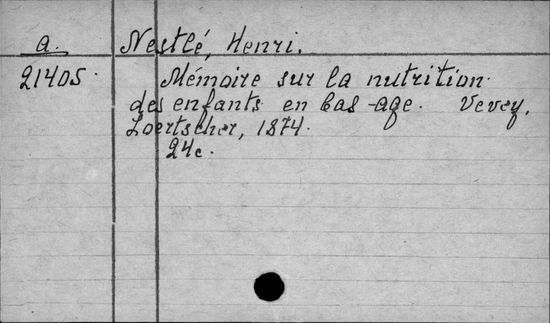 a. Nestlé, Henri.
21405. Mémoire sur la nutrition
des enfants en bas-age. Vevey,
Loertscher, 1874.
24c.